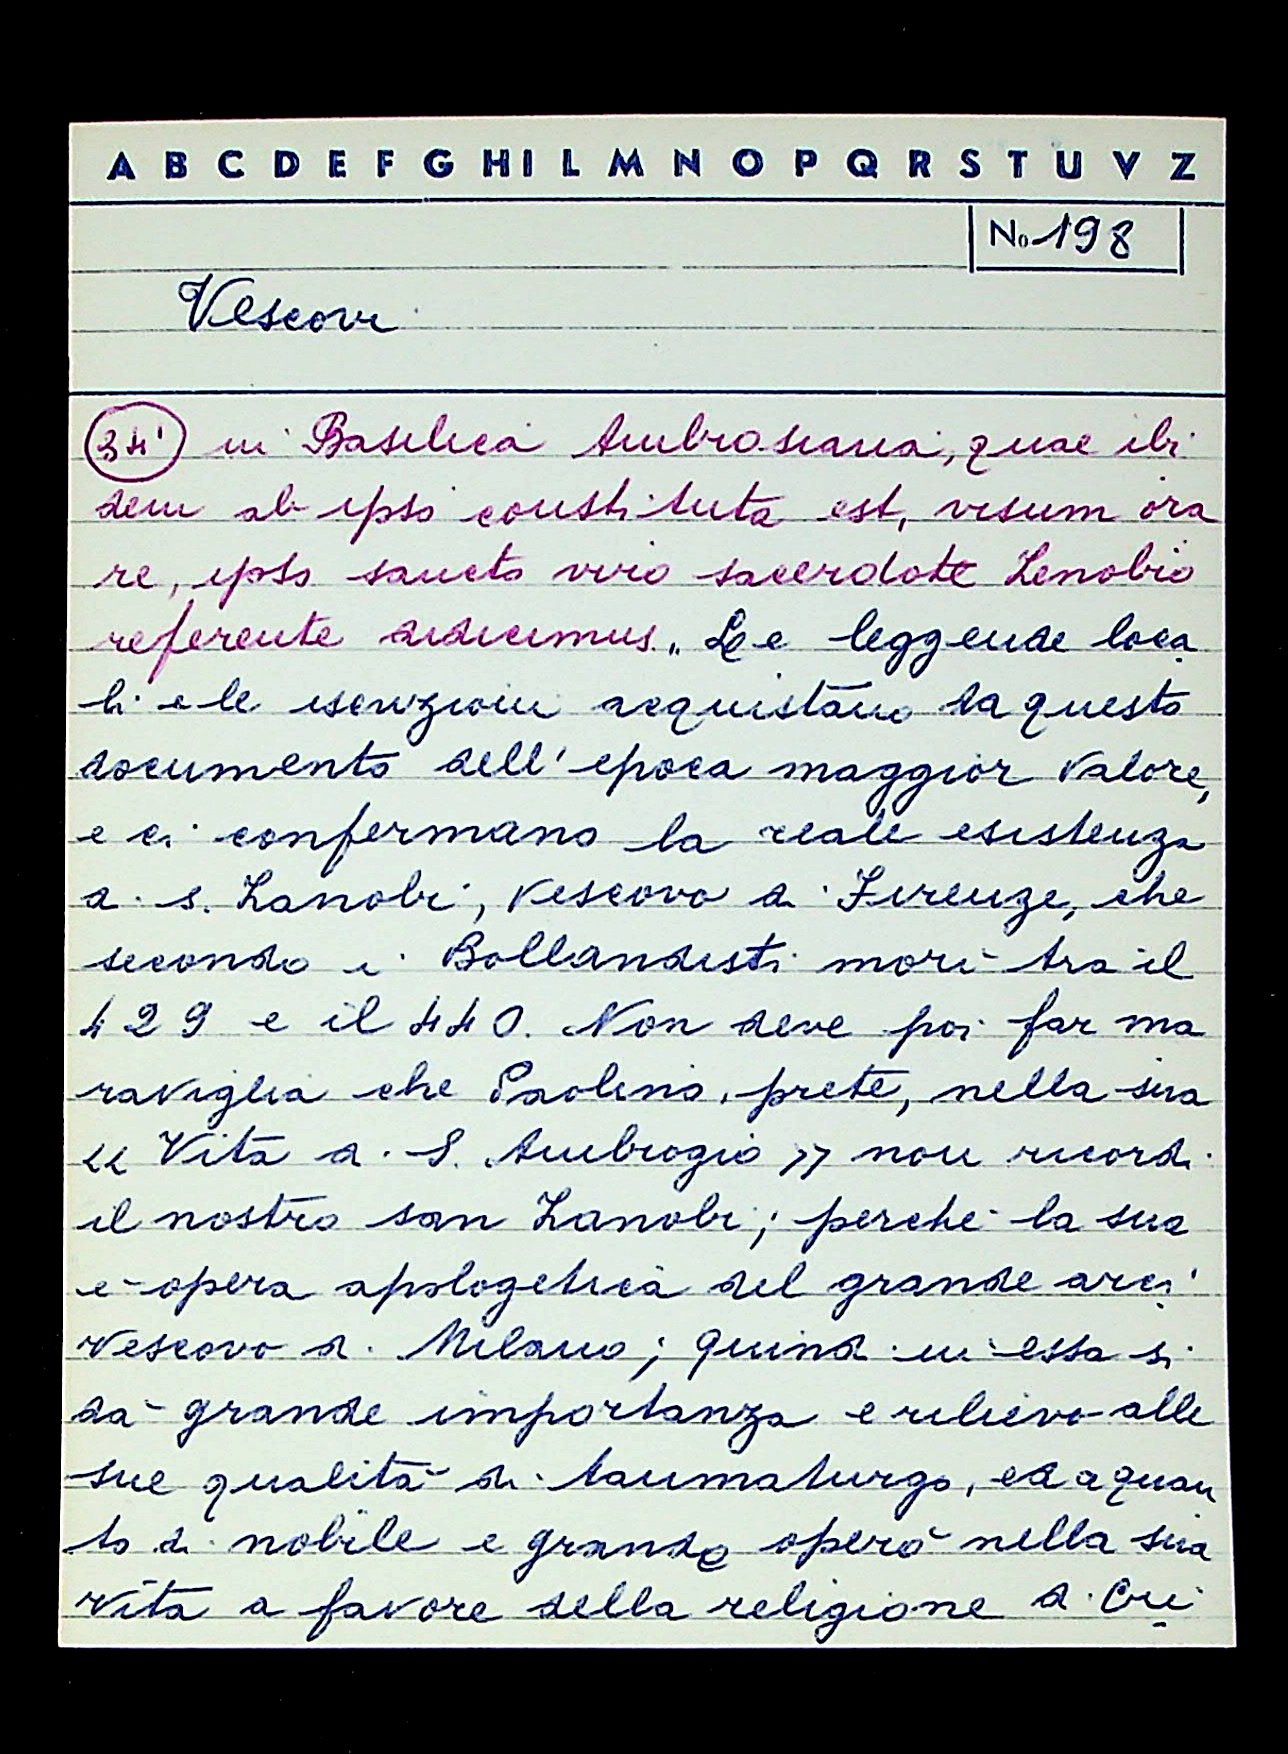 A B C D E F G H I L M N O P Q R S T U V Z
No 198
Vescovi
34' in Basilica Ambrosiana, quae ibi
dem ab ipso constituta est, visum ora
re, ipso sancto viro sacerdote Zenobio
referente didicimus„ Le leggende loca
li e le iscrizioni acquistano da questo
documento dell'epoca maggior valore,
e ci confermano la reale esistenza
di s. Zanobi, Vescovo di Firenze, che
secondo i Bollandisti morì tra il
429 e il 440. Non deve poi far ma
raviglia che Paolino, prete, nella sua
« Vita di S. Ambrogio » non ricordi
il nostro san Zanobi; perchè la sua
è opera apologetica del grande arci
vescovo di Milano; quindi in essa si
dà grande importanza e rilievo alle
sue qualità di taumaturgo, ed a quan
to di nobile e grande operò nella sua
vita a favore della religione di Cri